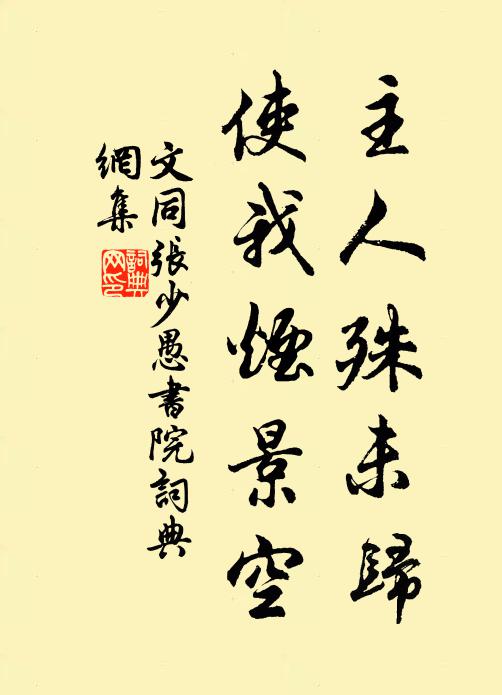 主人殊未歸
使我煙景空
文同張少愚書院詞典
網集
詞典
网印